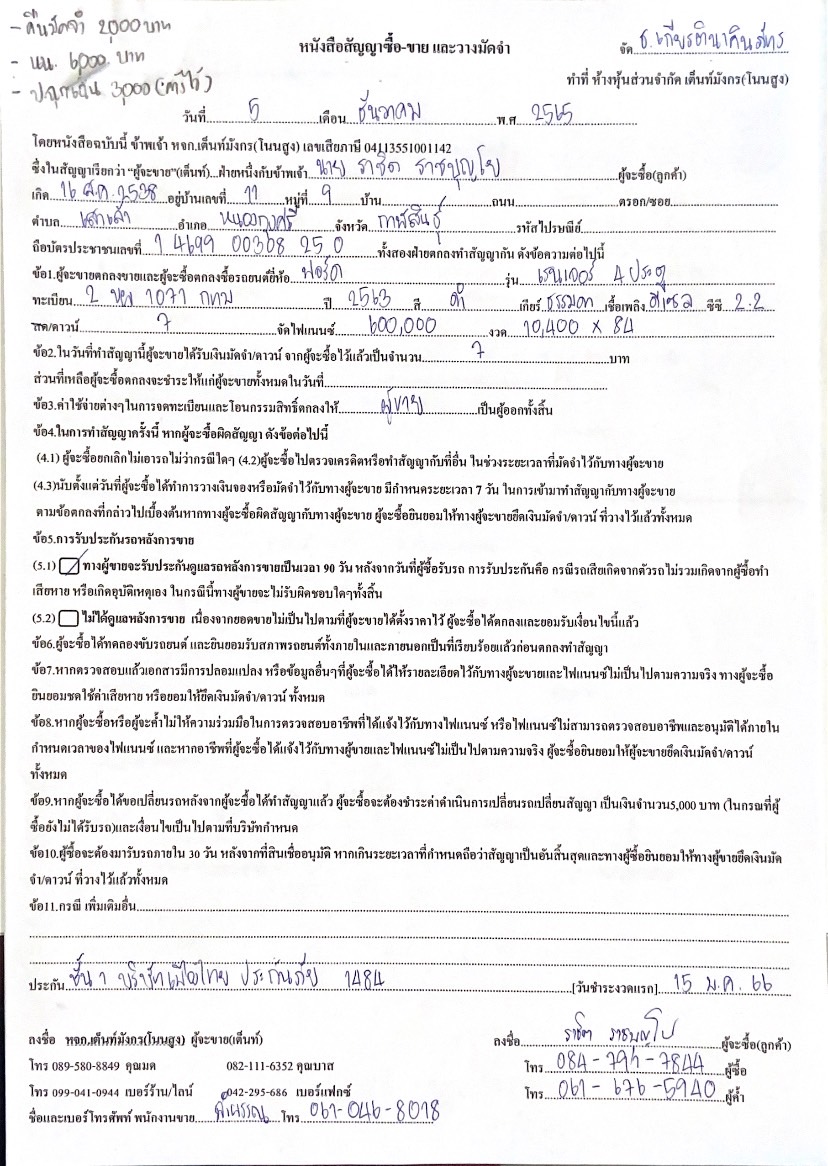 - คืนมัดจำ 2,000 บาท
- นน. 6,000. บาท
- ปลุกเงิน 3,000 (ค้างไว้)
หนังสือสัญญาซื้อ-ขาย และวางมัดจำ
จัด ธ.เกียรตินาคินภัทร
ทำที่ ห้างหุ้นส่วนจำกัด เต็นท์มังกร(โนนสูง)
วันที่ 5 เดือน ธันวาคม พ.ศ 2565
โดยหนังสือฉบับนี้ ข้าพเจ้า หจก.เต็นท์มังกร(โนนสูง) เลขเสียภาษี 04113551001142
ซึ่งในสัญญาเรียกว่า "ผู้จะขาย"(เต็นท์)...ฝ่ายหนึ่งกับข้าพเจ้า นาย ราชิต ราชบุญโย ผู้จะซื้อ(ลูกค้า)
เกิด 16 ส.ค. 2538 อยู่บ้านเลขที่ 11 หมู่ที่ 9 บ้าน ถนน ตรอก/ซอย
ตำบล เสาเล้า อำเภอ หนองกุงศรี จังหวัด กาฬสินธุ์ รหัสไปรษณีย์
ถือบัตรประชาชนเลขที่ 1 4699 00368 25 0 ทั้งสองฝ่ายตกลงทำสัญญากัน ดังข้อความต่อไปนี้
ข้อ1.ผู้จะขายตกลงขายและผู้จะซื้อตกลงซื้อรถยนต์ยี่ห้อ ฟอร์ด รุ่น เรนเจอร์ 4 ประตู
ทะเบียน 2 ขต 1071 กทม ปี 2563 สี ดำ เกียร์ ธรรมดา เชื้อเพลิง ดีเซล ซีซี 2.2
สด/ดาวน์ 7 จัดไฟแนนซ์ 600,000 งวด 10,400 x 84
ข้อ2.ในวันที่ทำสัญญานี้ผู้จะขายได้รับเงินมัดจำ/ดาวน์ จากผู้จะซื้อไว้แล้วเป็นจำนวน 7 บาท
ส่วนที่เหลือผู้จะซื้อตกลงจะชำระให้แก่ผู้จะขายทั้งหมดในวันที่
ข้อ3.ค่าใช้จ่ายต่างๆในการจดทะเบียนและโอนกรรมสิทธิ์ตกลงให้ ผู้ขาย เป็นผู้ออกทั้งสิ้น
ข้อ4.ในการทำสัญญาครั้งนี้ หากผู้จะซื้อผิดสัญญา ดังข้อต่อไปนี้
(4.1) ผู้จะซื้อยกเลิกไม่เอารถไม่ว่ากรณีใดๆ (4.2)ผู้จะซื้อไปตรวจเครดิตหรือทำสัญญากับที่อื่น ในช่วงระยะเวลาที่มัดจำไว้กับทางผู้จะขาย
(4.3)นับตั้งแต่วันที่ผู้จะซื้อได้ทำการวางเงินจองหรือมัดจำไว้กับทางผู้จะขาย มีกำหนดระยะเวลา 7 วัน ในการเข้ามาทำสัญญากับทางผู้จะขาย
ตามข้อตกลงที่กล่าวไปเบื้องต้นหากทางผู้จะซื้อผิดสัญญากับทางผู้จะขาย ผู้จะซื้อยินยอมให้ทางผู้จะขายยึดเงินมัดจำ/ดาวน์ ที่วางไว้แล้วทั้งหมด
ข้อ5.การรับประกันรถหลังการขาย
(5.1) ทางผู้ขายจะรับประกันดูแลรถหลังการขายเป็นเวลา 90 วัน หลังจากวันที่ผู้ซื้อรับรถ การรับประกันคือ กรณีรถเสียเกิดจากตัวรถไม่รวมเกิดจากผู้ซื้อทำ
เสียหาย หรือเกิดอุบัติเหตุเอง ในกรณีนี้ทางผู้ขายจะไม่รับผิดชอบใดๆทั้งสิ้น
(5.2) ไม่ได้ดูแลหลังการขาย เนื่องจากยอดขายไม่เป็นไปตามที่ผู้จะขายได้ตั้งราคาไว้ ผู้จะซื้อได้ตกลงและยอมรับเงื่อนไขนี้แล้ว
ข้อ6.ผู้จะซื้อได้ทดลองขับรถยนต์ และยินยอมรับสภาพรถยนต์ทั้งภายในและภายนอกเป็นที่เรียบร้อยแล้วก่อนตกลงทำสัญญา
ข้อ7.หากตรวจสอบแล้วเอกสารมีการปลอมแปลง หรือข้อมูลอื่นๆที่ผู้จะซื้อได้ให้รายละเอียดไว้กับทางผู้จะขายและไฟแนนซ์ไม่เป็นไปตามความจริง ทางผู้จะซื้อ
ยินยอมชดใช้ค่าเสียหาย หรือยอมให้ยึดเงินมัดจำ/ดาวน์ ทั้งหมด
ข้อ8.หากผู้จะซื้อหรือผู้จะค้ำไม่ให้ความร่วมมือในการตรวจสอบอาชีพที่ได้แจ้งไว้กับทางไฟแนนซ์ หรือไฟแนนซ์ไม่สามารถตรวจสอบอาชีพและอนุมัติได้ภายใน
กำหนดเวลาของไฟแนนซ์ และหากอาชีพที่ผู้จะซื้อได้แจ้งไว้กับทางผู้ขายและไฟแนนซ์ไม่เป็นไปตามความจริง ผู้จะซื้อยินยอมให้ผู้จะขายยึดเงินมัดจำ/ดาวน์
ทั้งหมด
ข้อ9.หากผู้จะซื้อได้ขอเปลี่ยนรถหลังจากผู้จะซื้อได้ทำสัญญาแล้ว ผู้จะซื้อจะต้องชำระค่าดำเนินการเปลี่ยนรถเปลี่ยนสัญญา เป็นเงินจำนวน5,000 บาท (ในกรณที่ผู้
ซื้อยังไม่ได้รับรถ)และเงื่อนไขเป็นไปตามที่บริษัทกำหนด
ข้อ10.ผู้ซื้อจะต้องมารับรถภายใน 30 วัน หลังจากที่สินเชื่ออนุมัติ หากเกินระยะเวลาที่กำหนดถือว่าสัญญาเป็นอันสิ้นสุดและทางผู้ซื้อยินยอมให้ทางผู้ขายยึดเงินมัด
จำ/ดาวน์ ที่วางไว้แล้วทั้งหมด
ข้อ11.กรณี เพิ่มเติมอื่น
ประกัน ชั้น 1 บริษัทเมืองไทย ประกันภัย 1484 [วันชำระงวดแรก] 15 ม.ค. 66
ลงชื่อ หจก.เต็นท์มังกร(โนนสูง) ผู้จะขาย(เต็นท์)
ลงชื่อ ราชิต ราชบุญโย ผู้จะซื้อ(ลูกค้า)
โทร 089-580-8849 คุณมด 082-111-6352 คุณบาส
โทร 084-794-7844 ผู้ซื้อ
โทร 099-041-0944 เบอร์ร้าน/ไลน์ 042-295-686 เบอร์แฟกซ์
โทร 061-676-5940 ผู้ค้ำ
ชื่อและเบอร์โทรศัพท์ พนักงานขาย โทร 061-046-8018